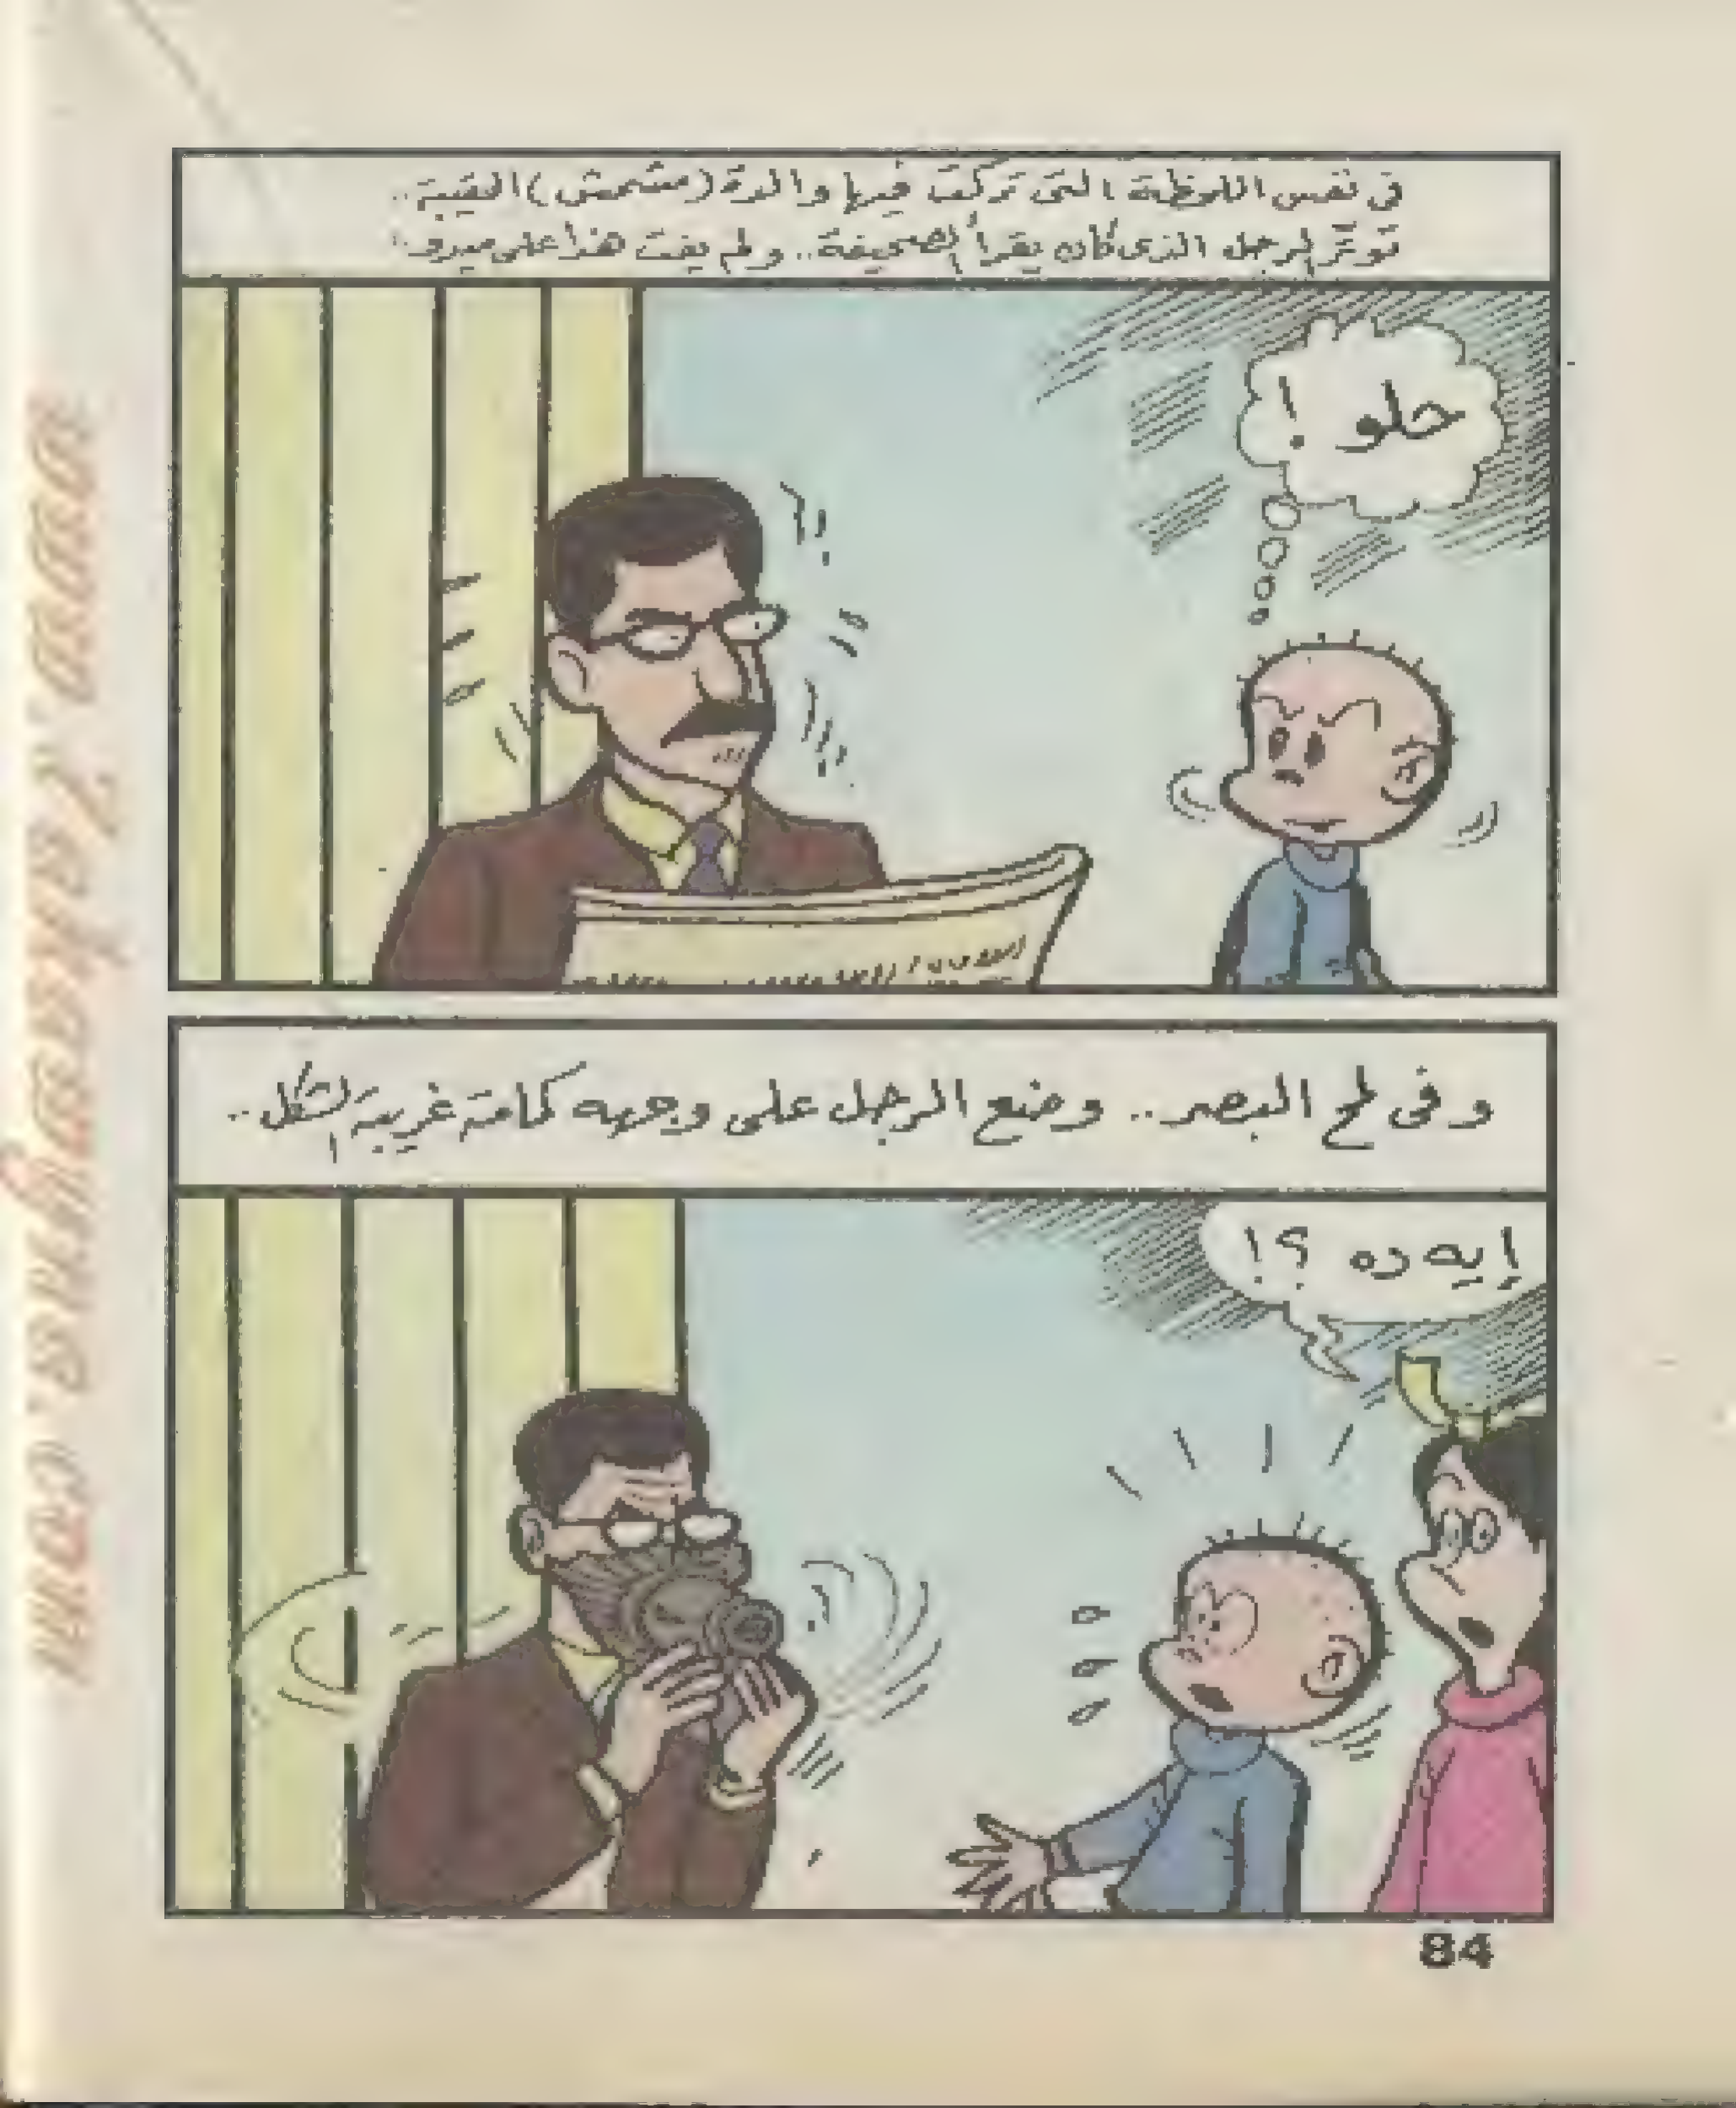 فى نفس اللحظة التى تركت فيها والدة (مشمش) الحقيبة..
توتّر الرجل الذى كان يقرأ الصحيفة.. ولم يفت هذا على ميدو..
حلو !
وفى لمح البصر.. وضع الرجل على وجهه كمامة غريبة الشكل..
إيه ده ؟!
84